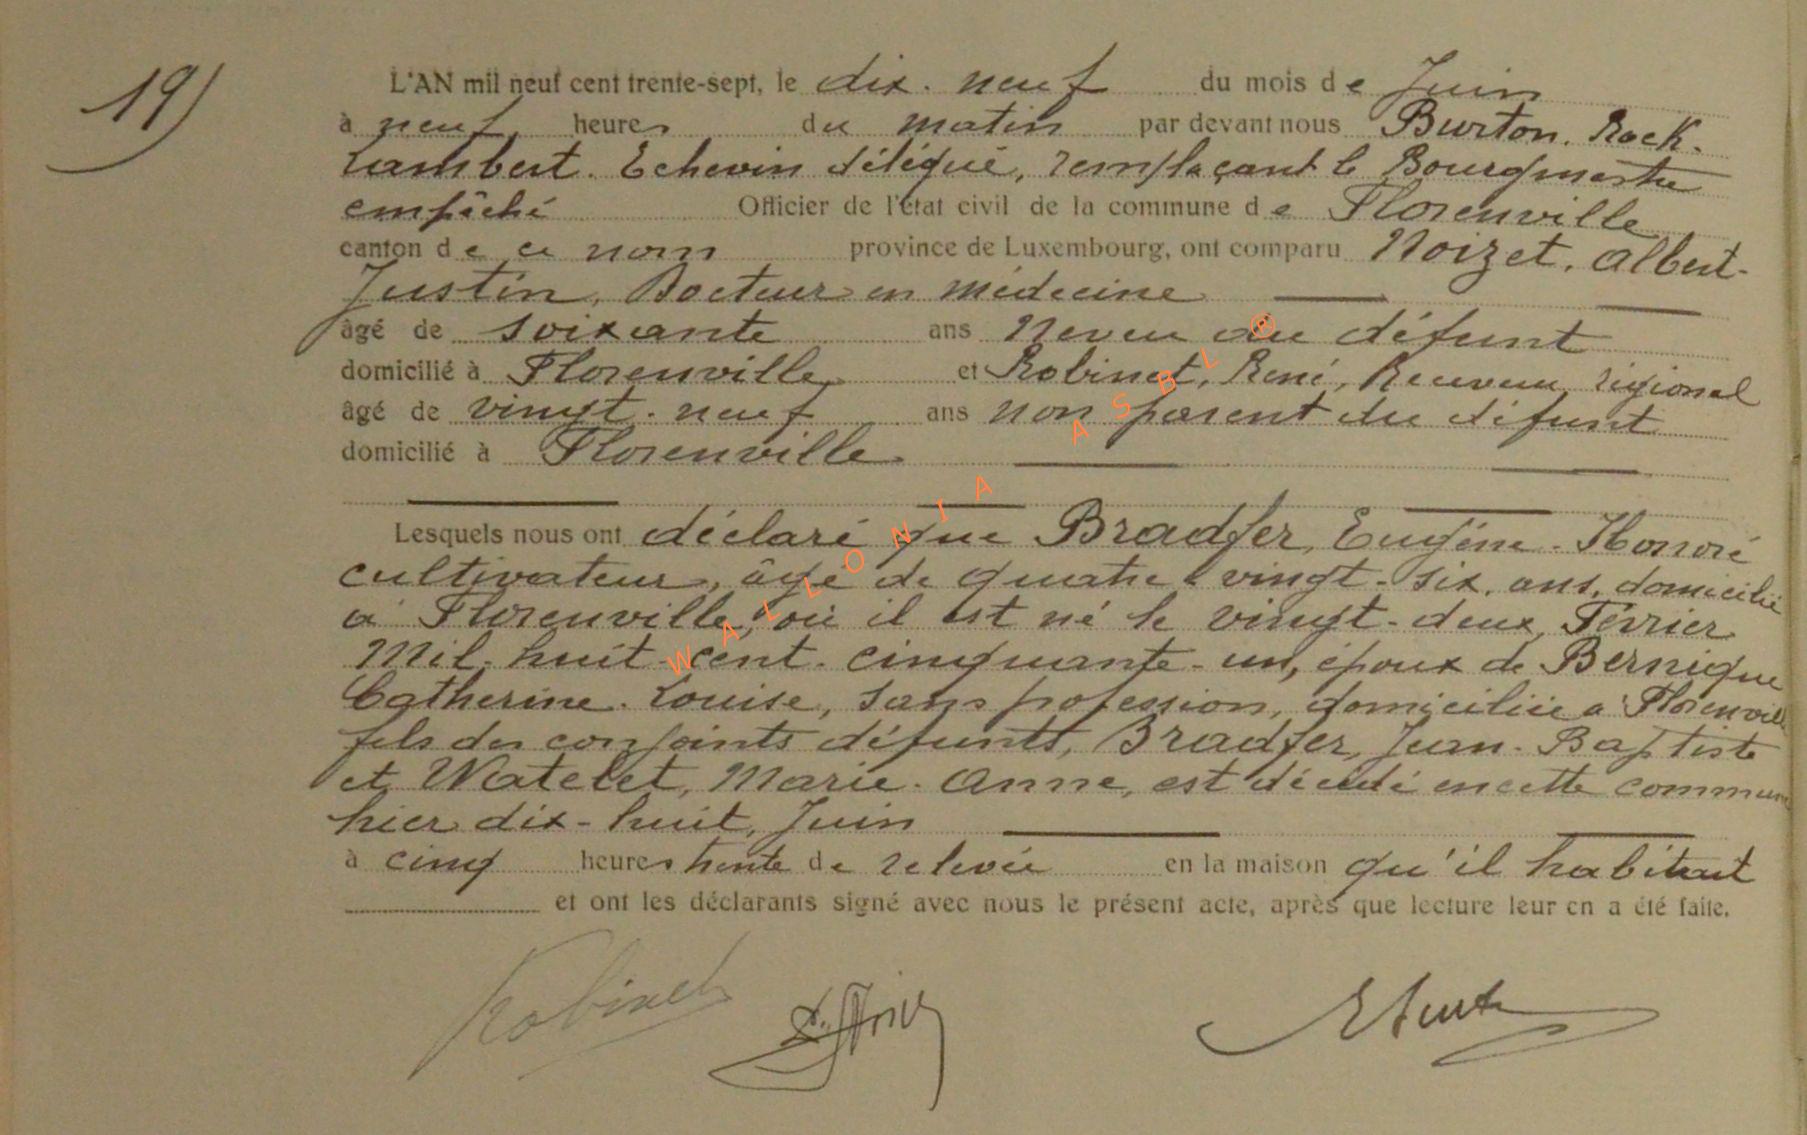 19)
L'AN mil neuf cent trente-sept, le dix-neuf du mois de Juin
à neuf heures du matin par devant nous Burton, Rock-
Lambert. Echevin délégué, remplaçant le Bourgmestre
empêché Officier de l'état civil de la commune de Florenville
canton de ce nom province de Luxembourg, ont comparu Noizet, Albert-
Justin, Docteur en médecine
âgé de soixante ans neveu du défunt
domicilié à Florenville et Robinet, René, Receveur régional
âgé de vingt-neuf ans non parent du défunt
domicilié à Florenville
Lesquels nous ont déclaré que Bradfer, Eugène-Honoré
cultivateur, âgé de quatre-vingt-six ans, domicilié
à Florenville, où il est né le vingt-deux Février
Mil-huit-cent-cinquante-un, époux de Bernique
Catherine-Louise, sans profession, domiciliée à Florenville
fils des conjoints défunts, Bradfer, Jean-Baptiste
et Watelet, Marie-Anne, est décédé en cette commune
hier dix-huit, Juin
à cinq heures trente de relevée en la maison qu'il habitait
et ont les déclarants signé avec nous le présent acte, après que lecture leur en a été faite.
Robinet
WALLONIA ASBL ®